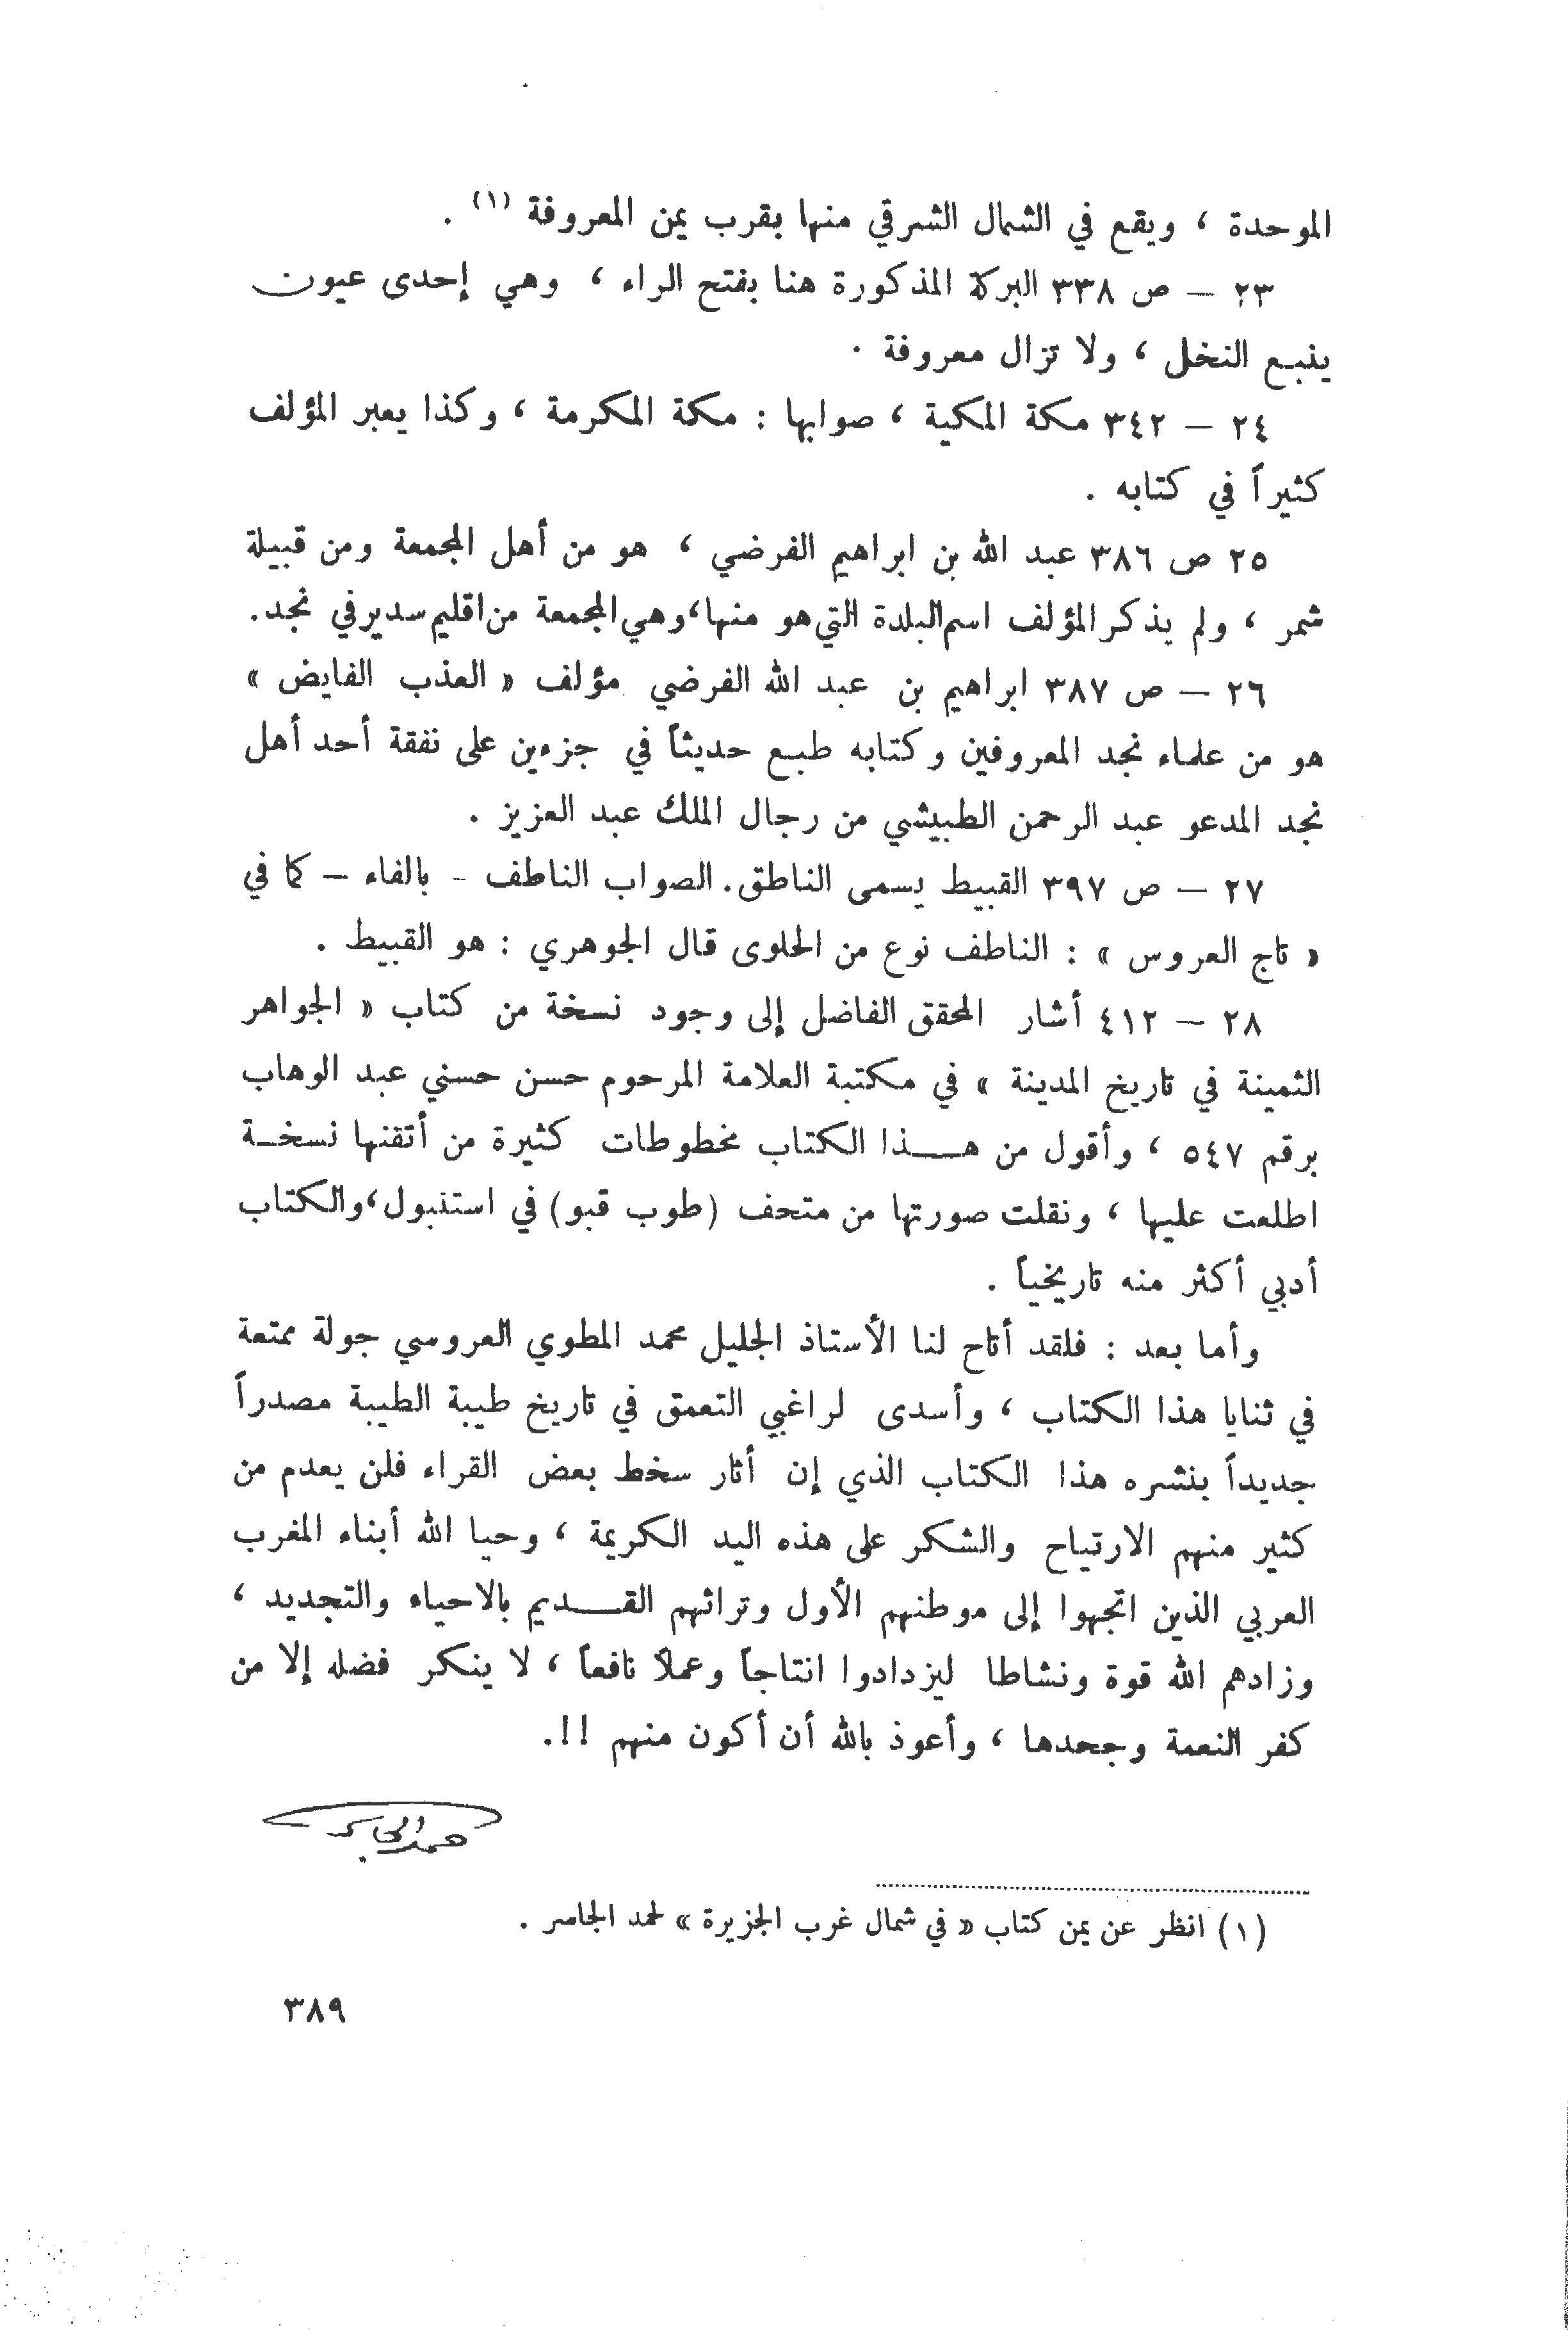 الموحدة ، ويقع في الشمال الشرقي منها بقرب يمن المعروفة (١) .
٢٣ – ص ٣٣٨ البركة المذكورة هنا بفتح الراء ، وهي إحدى عيون
ينبع النخل ، ولا تزال معروفة .
٢٤ – ٣٤٢ مكة المكية ، صوابها : مكة المكرمة ، وكذا يعبر المؤلف
كثيراً في كتابه .
٢٥ ص ٣٨٦ عبد الله بن ابراهيم الفرضي ، هو من أهل المجمعة ومن قبيلة
شمر ، ولم يذكر المؤلف اسم البلدة التي هو منها، وهي المجمعة من اقليم سدير في نجد.
٢٦ – ص ٣٨٧ ابراهيم بن عبد الله الفرضي مؤلف « العذب الفايض »
هو من علماء نجد المعروفين وكتابه طبع حديثاً في جزءين على نفقة أحد أهل
نجد المدعو عبد الرحمن الطبيشي من رجال الملك عبد العزيز .
٢٧ – ص ٣٩٧ القبيط يسمى الناطق. الصواب الناطف - بالفاء – كما في
« تاج العروس » : الناطف نوع من الحلوى قال الجوهري : هو القبيط .
٢٨ – ٤١٢ أشار المحقق الفاضل إلى وجود نسخة من كتاب « الجواهر
الثمينة في تاريخ المدينة » في مكتبة العلامة المرحوم حسن حسني عبد الوهاب
برقم ٥٤٧ ، وأقول من هـذا الكتاب مخطوطات كثيرة من أتقنها نسخـة
اطلعت عليها ، ونقلت صورتها من متحف (طوب قبو) في استنبول، والكتاب
أدبي أكثر منه تاريخياً .
وأما بعد : فلقد أتاح لنا الأستاذ الجليل محمد المطوي العروسي جولة ممتعة
في ثنايا هذا الكتاب ، وأسدى لراغبي التعمق في تاريخ طيبة الطيبة مصدراً
جديداً بنشره هذا الكتاب الذي إن أثار سخط بعض القراء فلن يعدم من
كثير منهم الارتياح والشكر على هذه اليد الكريمة ، وحيا الله أبناء المغرب
العربي الذين اتجهوا إلى موطنهم الأول وتراثهم القـديم بالاحياء والتجديد ،
وزادهم الله قوة ونشاطا ليزدادوا انتاجاً وعملاً نافعاً ، لا ينكر فضله إلا من
كفر النعمة وجحدها ، وأعوذ بالله أن أكون منهم !!.
حمد الجاسر
(١) انظر عن يمن كتاب « في شمال غرب الجزيرة » لحمد الجاسر .
٣٨٩